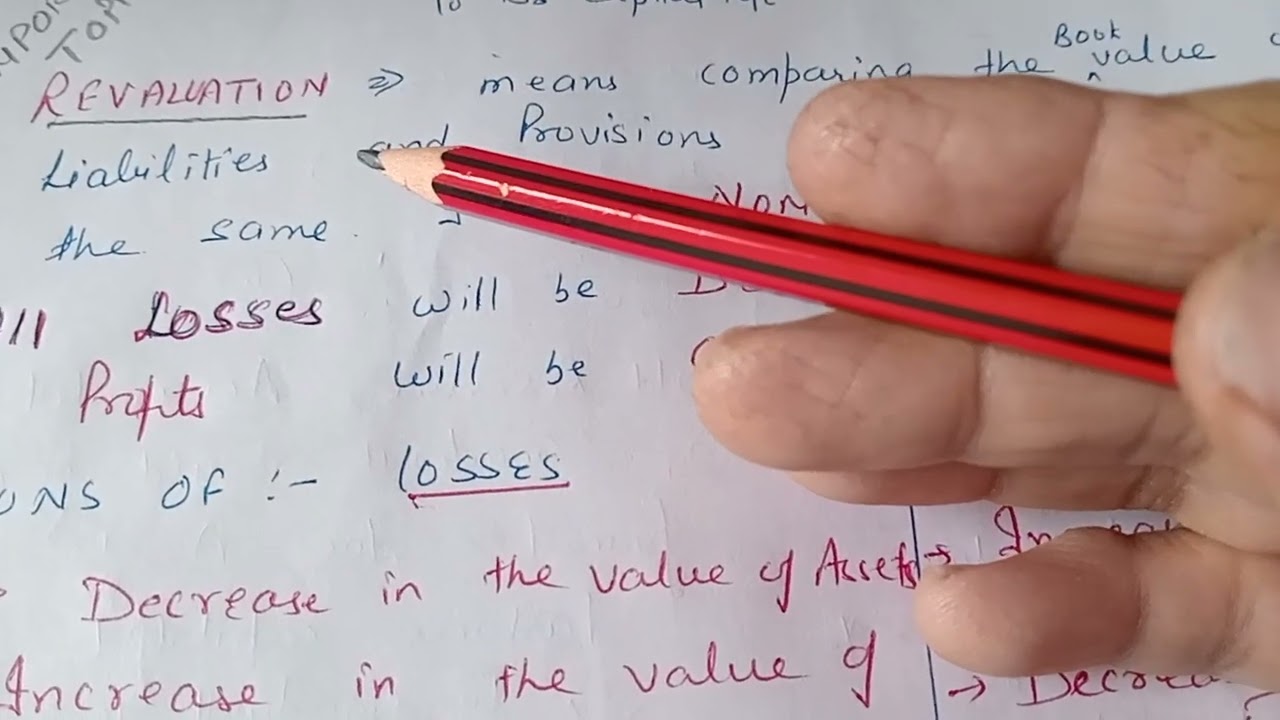 REVALUATION ⇒ means comparing the Book value
Liabilities and Provisions
the same.
Losses will be
Profits will be
OF :- LOSSES
Decrease in the value of Assets →
Increase in the value of →